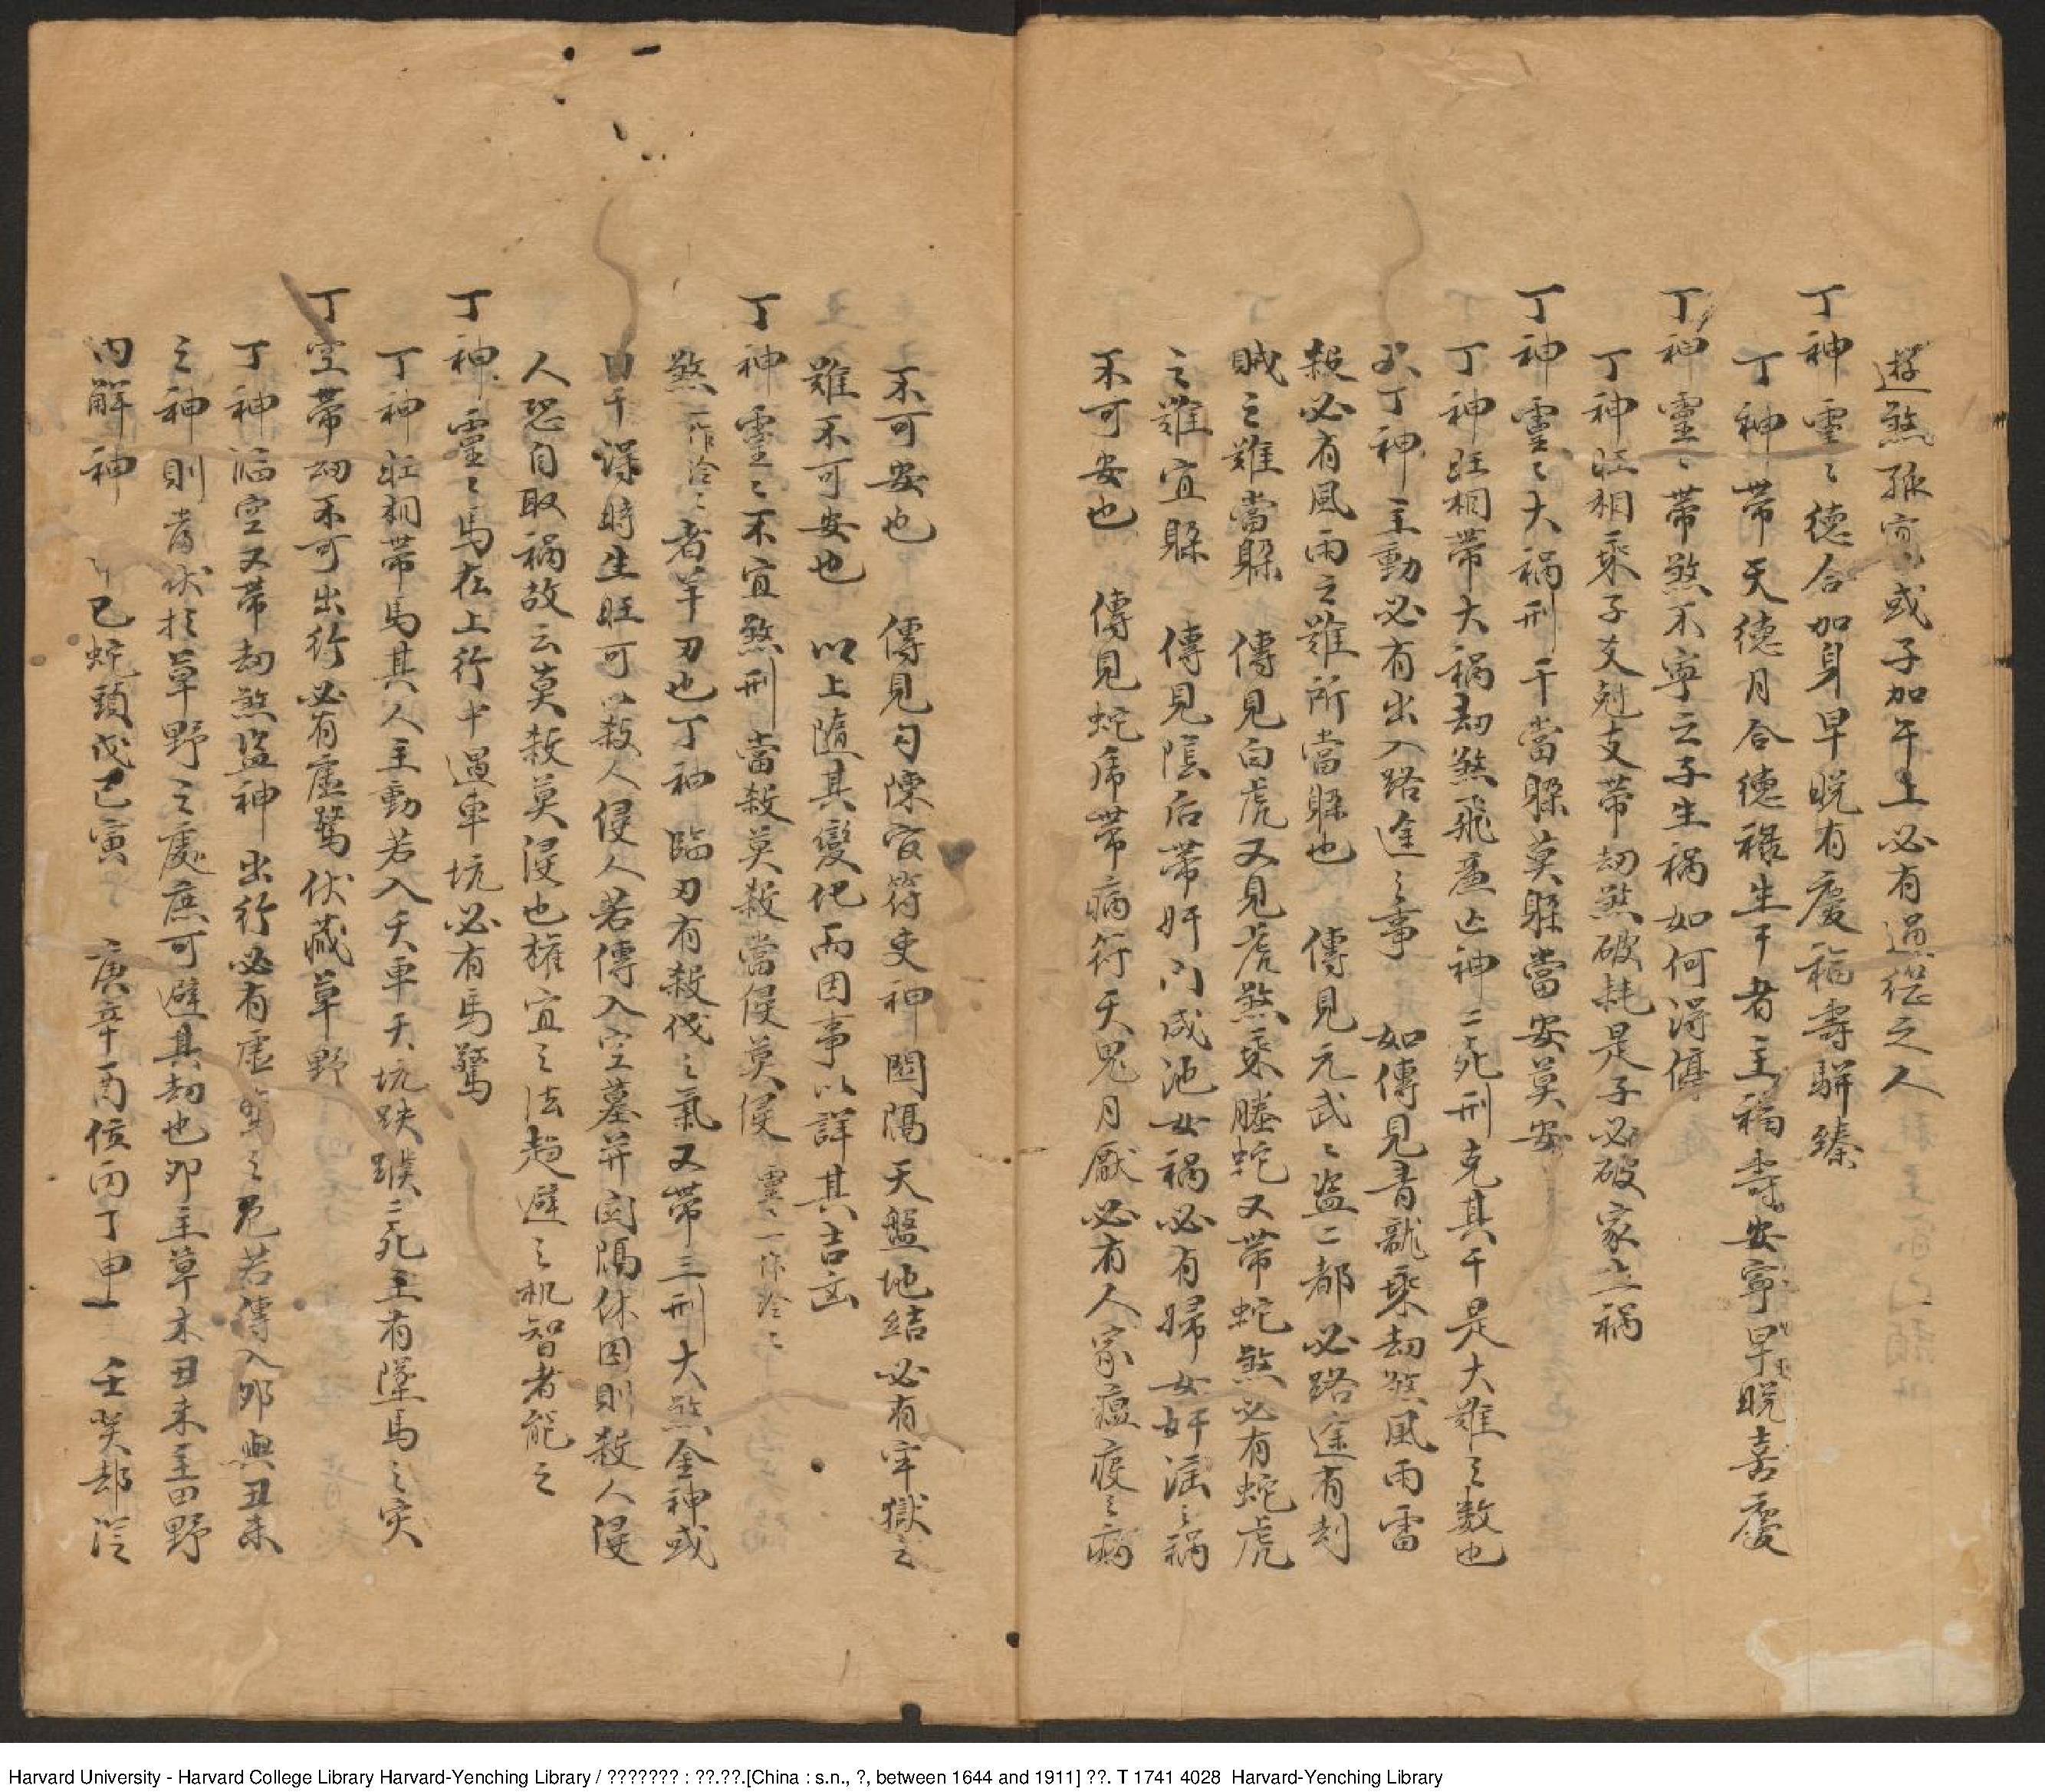 遊煞孤寡以或子加午上必有過從之人
丁神靈〻德合加身早晚有慶福壽駢臻
丁神帶天德月合德祿生干者主福壽安寧早晚喜慶
丁神靈〻帶煞不寧云子生禍如何淂停
丁神旺相乘子支尅支帶刼煞破耗是子必破家立禍
丁神靈〻大禍刑干當躱莫躱當安莫安
丁神旺相帶大禍刼煞飛廉亡神二死刑克其干是大難之数也
丁神主動必有出入路途之事 如傳見青龍乘刼煞風雨雷
殺必有風雨之難所當躱也 傳見元武〻盗二都必路途有刦
賊之難當躱 傳見白虎又見虎煞乘螣蛇又帶蛇煞必有蛇虎
之難宜躱 傳見陰后帶奸門咸池女禍必有婦女奸淫之禍
不可安也 傳見蛇虎帶病符天鬼月厭必有人家瘟疫之病
不可安也 傳見勾陳官符吏神関隔天盤地結必有牢獄之
難不可安也 以上隨其變化而因事以詳其吉凶
丁神靈〻不宜煞刑當殺莫殺當侵莫侵 靈〻一作泠〻
煞一作泠〻者羊刃也丁神臨刃有殺伐之氣又帶三刑大煞金神或
日干課時生旺可以殺人侵人若傳入空墓并関隔休囚則殺人侵
人恐自取禍故云莫殺莫侵也權宜之法趨避之机智者能之
丁神靈〻馬在上行中過車坑必有馬驚
丁神旺相帶馬其人主動若入天車天坑跌蹼二死主有墜馬之灾
丁空帶刼不可出行必有虛驚伏藏草野
丁神臨空又帶刼煞盗神出行必有虛驚之危若傳入夘與丑未
之神則當伏於草野之處庶可避其刼也夘主草木丑未主田野
内解神 巳蛇頭戊己寅 庚辛酉位丙丁申 壬癸却從